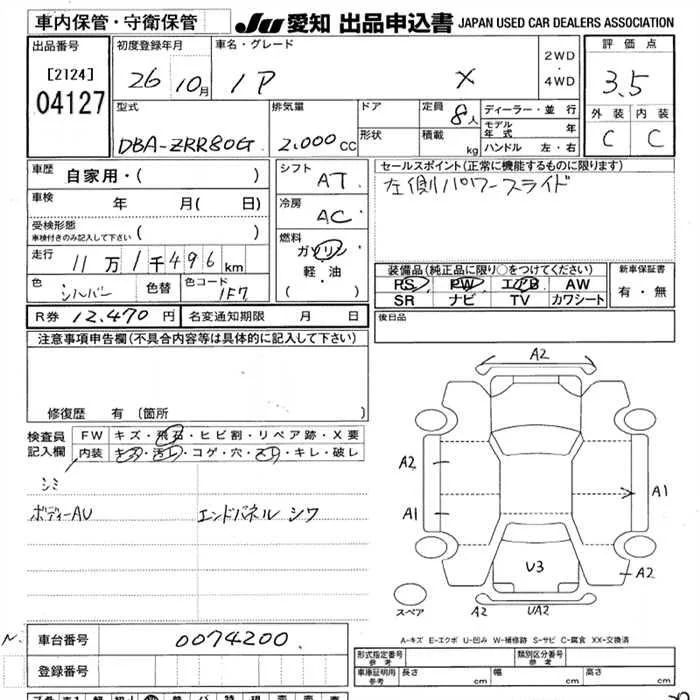 車内保管・守衛保管 JU 愛知 出品申込書 JAPAN USED CAR DEALERS ASSOCIATION
出品番号 初度登録年月 車名・グレード 2WD・4WD 評価点
[2124] 26 10月 X 3.5
04127
型式 排気量 ドア 定員 8人 ディーラー・並行 外装 内装
モデル年式 年
DBA-ZRR80G 2,000cc 形状 積載 kg ハンドル 左・右 C C
車歴 自家用・( ) シフト AT セールスポイント(正常に機能するものに限ります)
左側パワースライド
車検 年 月( 日) 冷房 AC
受検形態 車検付きのみ記入して下さい ( ) 燃料
走行 11万1千496km ガソリン
軽・油
( )
装備品(純正品に限り○をつけてください) 新車保証書
色 シルバー 色替 色コード 1F7 PS PW エアB AW 有・無
SR ナビ TV カワシート
R券 12,470円 名変通知期限 月 日 後日品
注意事項申告欄(不具合内容等は具体的に記入して下さい)
修復歴 有 〔箇所
検査員記入欄 FW キズ・飛石・ヒビ割・リペア跡・X要
内装 キズ・汚レ・コゲ・穴・スレ・キレ・破レ
シミ
ボディーAU エンドパネル シワ
A2
A2 A1
A1
U3 A2
スペア A2 UA2
A-キズ E-エクボ U-凹み W-補修跡 S-サビ C-腐食 XX-交換済
車台番号 0074200
登録番号
形式指定番号 参考 類別区分番号 参考
車庫証明用 参考 長さ cm 幅 cm 高さ cm